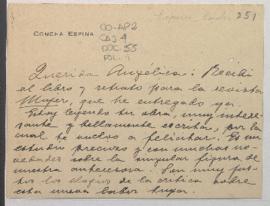 251
CONCHA ESPINA
CO-AP2
CAJ 4
DOC 55
FOL. 1
Querida Angélica: Recibí
el libro y retrato para la revista
Mujer, que he entregado ya.
Estoy leyendo tu obra, muy intere-
sante y bellamente escrita, por la
cual te vuelvo a felicitar. Es un
estudio precioso y con muchas no-
vedades sobre la singular figura de
nuestra antecesora. Son muy jus-
tos los elogios de la crítica sobre
esta nueva labor tuya.